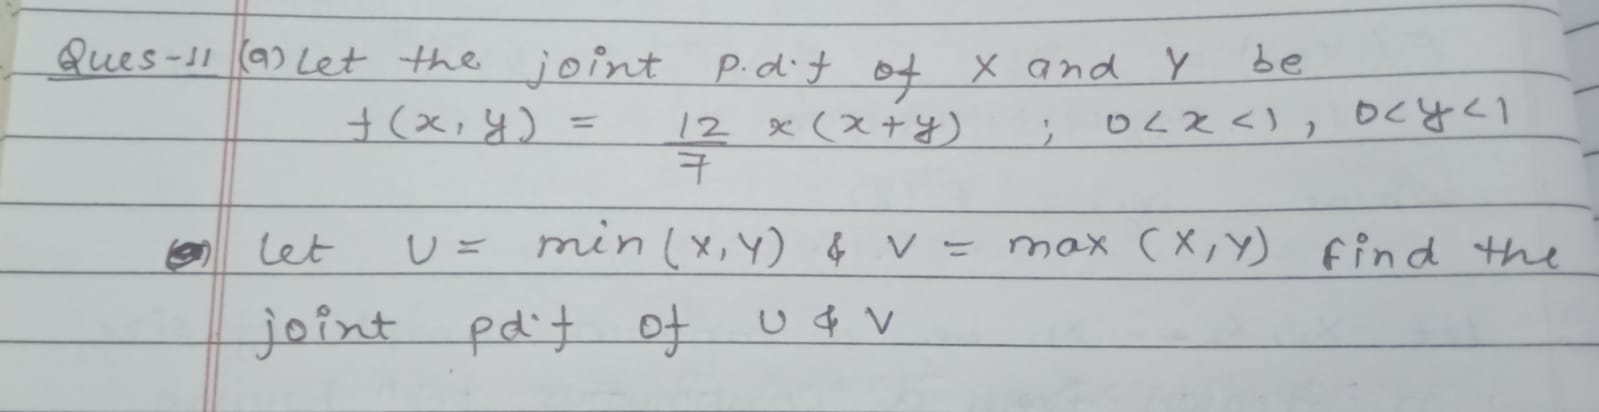 Ques-11 (a) Let the joint p.d.f of X and Y be
f(x, y) = 12/7 x(x+y) ; 0<x<1, 0<y<1
Let U = min(X,Y) & V = max (X,Y) find the
joint pd.f of U & V